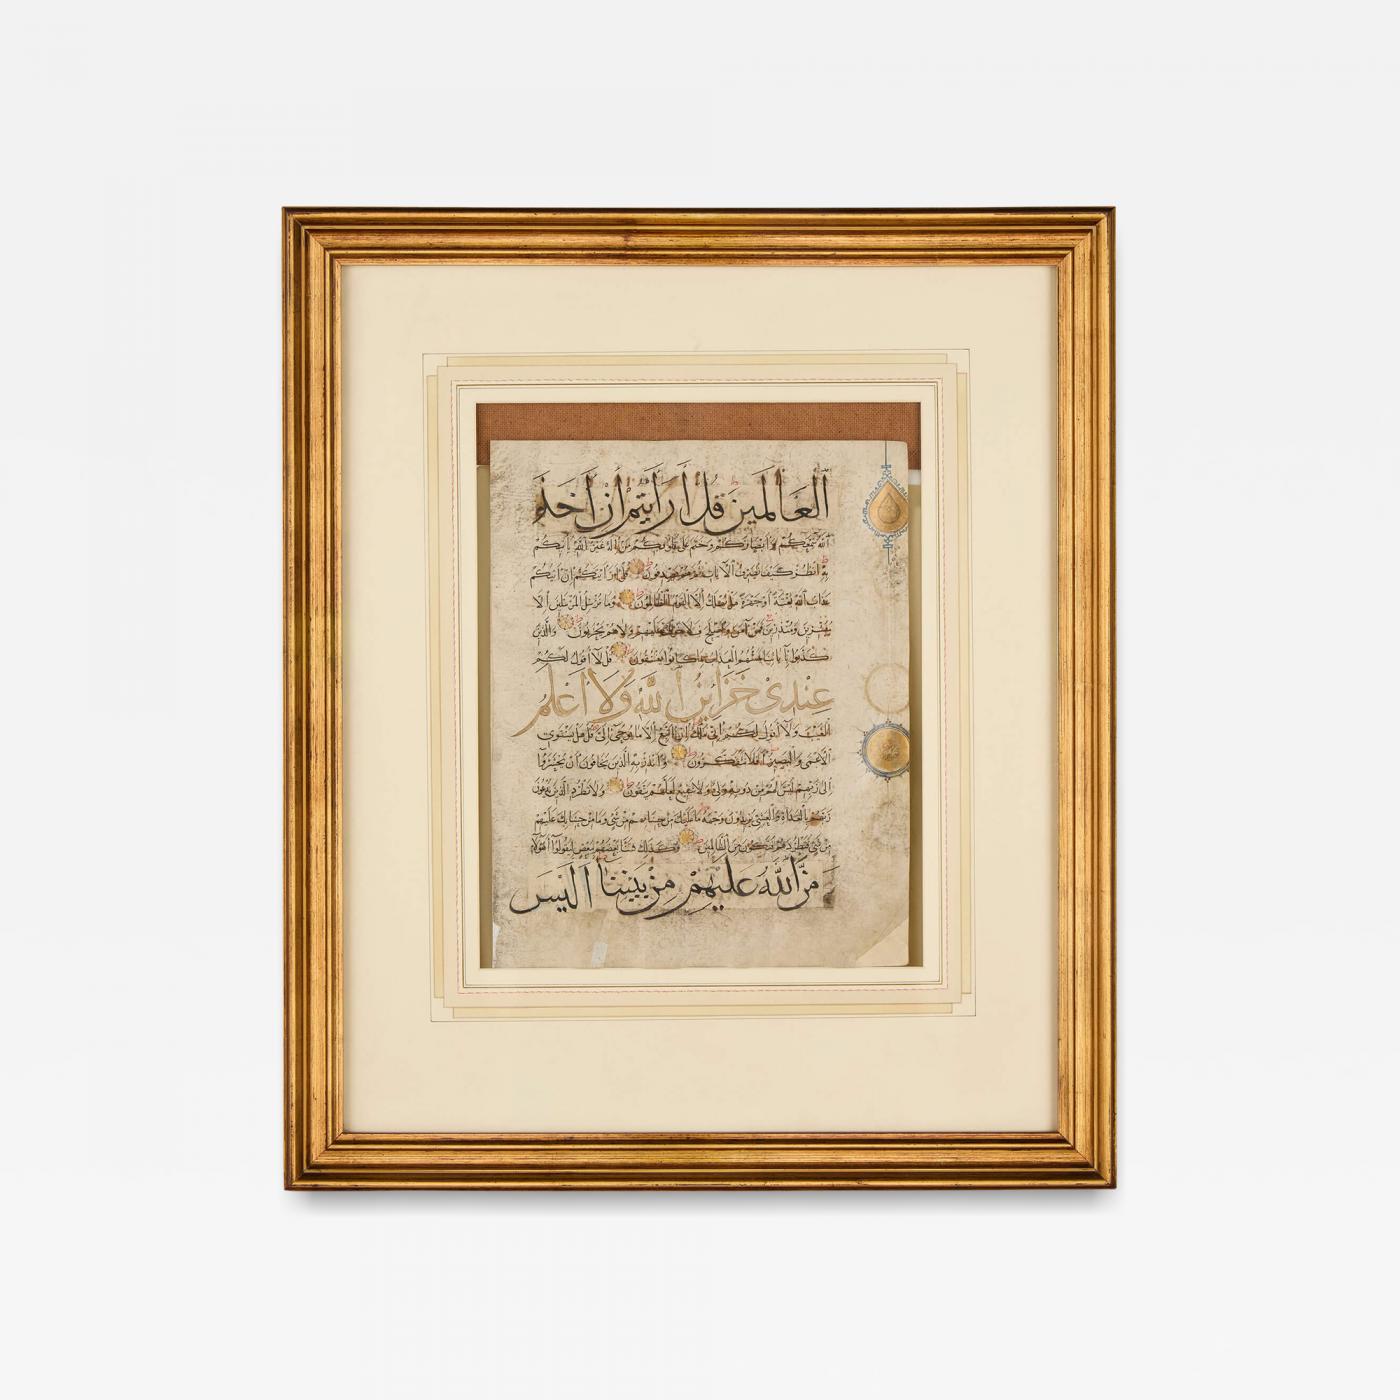 العَالَمِينَ قُلْ أَرَأَيْتُمْ إِنْ أَخَذَ
اللَّهُ سَمْعَكُمْ وَأَبْصَارَكُمْ وَخَتَمَ عَلَى قُلُوبِكُمْ مَنْ إِلَهٌ غَيْرُ اللَّهِ يَأْتِيكُمْ
بِهِ انْظُرْ كَيْفَ نُصَرِّفُ الْآيَاتِ ثُمَّ هُمْ يَصْدِفُونَ قُلْ أَرَأَيْتَكُمْ إِنْ أَتَاكُمْ
عَذَابُ اللَّهِ بَغْتَةً أَوْ جَهْرَةً هَلْ يُهْلَكُ إِلَّا الْقَوْمُ الظَّالِمُونَ وَمَا نُرْسِلُ الْمُرْسَلِينَ إِلَّا
مُبَشِّرِينَ وَمُنْذِرِينَ فَمَنْ آمَنَ وَأَصْلَحَ فَلَا خَوْفٌ عَلَيْهِمْ وَلَا هُمْ يَحْزَنُونَ وَالَّذِينَ
كَذَّبُوا بِآيَاتِنَا يَمَسُّهُمُ الْعَذَابُ بِمَا كَانُوا يَفْسُقُونَ قُلْ لَا أَقُولُ لَكُمْ
عِنْدِي خَزَائِنُ اللَّهِ وَلَا أَعْلَمُ
الْغَيْبَ وَلَا أَقُولُ لَكُمْ إِنِّي مَلَكٌ إِنْ أَتَّبِعُ إِلَّا مَا يُوحَى إِلَيَّ قُلْ هَلْ يَسْتَوِي
الْأَعْمَى وَالْبَصِيرُ أَفَلَا تَتَفَكَّرُونَ وَأَنْذِرْ بِهِ الَّذِينَ يَخَافُونَ أَنْ يُحْشَرُوا
إِلَى رَبِّهِمْ لَيْسَ لَهُمْ مِنْ دُونِهِ وَلِيٌّ وَلَا شَفِيعٌ لَعَلَّهُمْ يَتَّقُونَ وَلَا تَطْرُدِ الَّذِينَ يَدْعُونَ
رَبَّهُمْ بِالْغَدَاةِ وَالْعَشِيِّ يُرِيدُونَ وَجْهَهُ مَا عَلَيْكَ مِنْ حِسَابِهِمْ مِنْ شَيْءٍ وَمَا مِنْ حِسَابِكَ عَلَيْهِمْ
مِنْ شَيْءٍ فَتَطْرُدَهُمْ فَتَكُونَ مِنَ الظَّالِمِينَ وَكَذَلِكَ فَتَنَّا بَعْضَهُمْ بِبَعْضٍ لِيَقُولُوا أَهَؤُلَاءِ
مَنَّ اللَّهُ عَلَيْهِمْ مِنْ بَيْنِنَا أَلَيْسَ